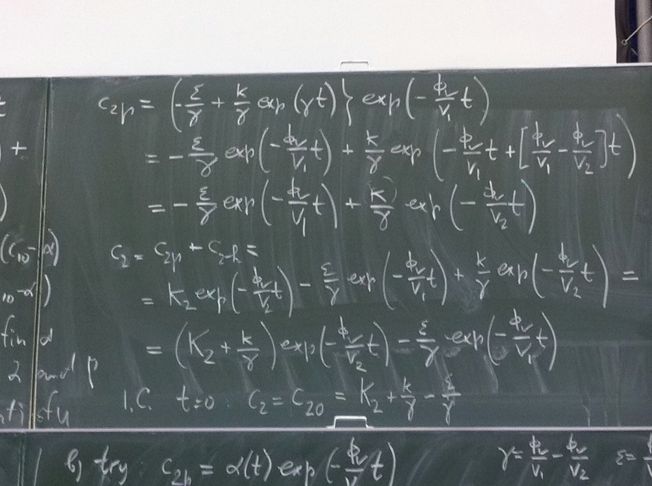 t
c₂p = (-ε/γ + k/γ exp(γt)} exp(-ϕv/V₁ t)
+
= -ε/γ exp(-ϕv/V₁ t) + k/γ exp(-ϕv/V₁ t + [ϕv/V₁ - ϕv/V₂]t)
)
= -ε/γ exp(-ϕv/V₁ t) + k/γ exp(-ϕv/V₂ t)
(C₁₀-α)
c₂ = c₂p + c₂-h =
₁₀-α)
= K₂ exp(-ϕv/V₂ t) - ε/γ exp(-ϕv/V₁ t) + k/γ exp(-ϕv/V₂ t) =
find
= (K₂ + k/γ) exp(-ϕv/V₂ t) - ε/γ exp(-ϕv/V₁ t)
2 and p
I.C. t=0 : C₂ = C₂₀ = K₂ + k/γ - ε/γ
b) try: c₂p = α(t) exp(-ϕv/V t) γ = ϕv/V₁ - ϕv/V₂ ε =